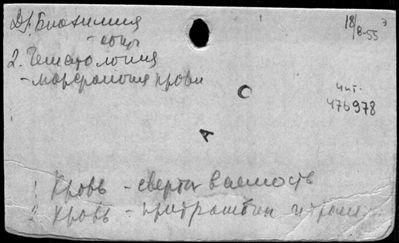 Др. Биохимия
- общ.
2. Гематология
- морфология крови
18/8-55 э
чит.
476978
А
1 Кровь - свертываемость
2 Кровь - протромбин и тром